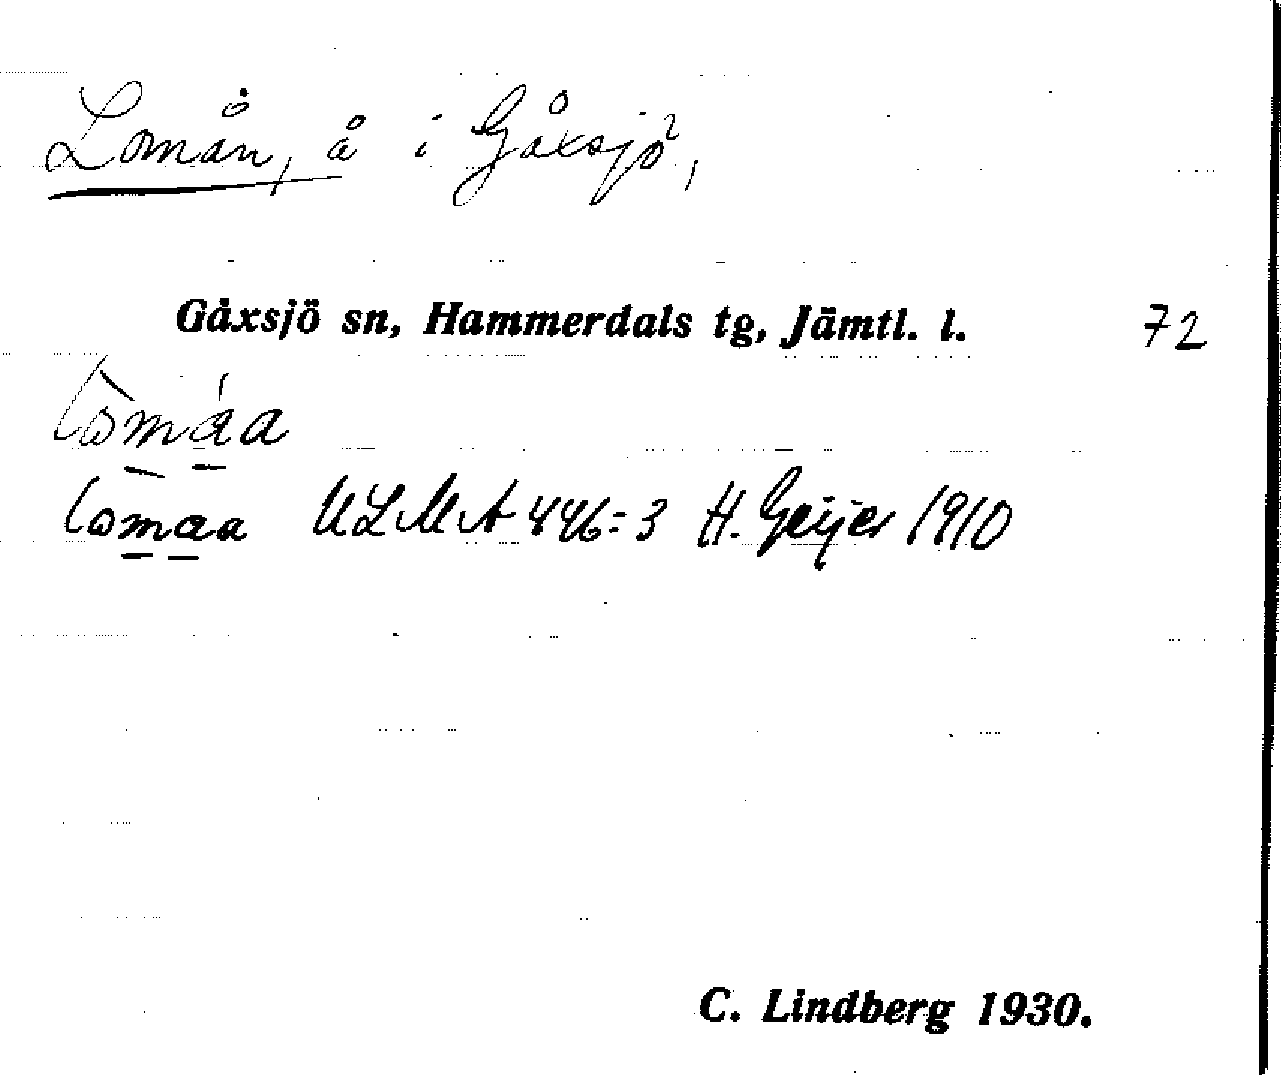 Lomån, å i Gåxsjö,
Gåxsjö sn, Hammerdals tg, Jämtl. l. 72
lòmáa
lomaa ULMA 446:3 H. Geijer 1910
C. Lindberg 1930.